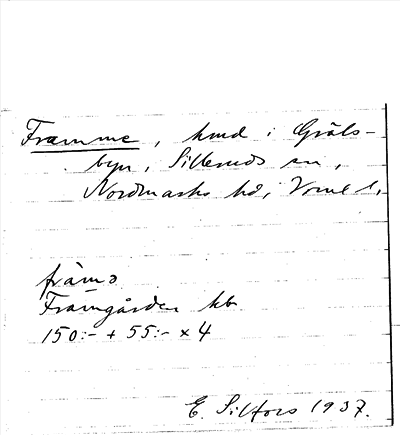 Framme, hmd i Gräls-
byn, Silleruds sn,
Nordmarks hd, Vrml l.
främə
Framgården hb
150:- + 55:- x 4
E. Silfors 1937.